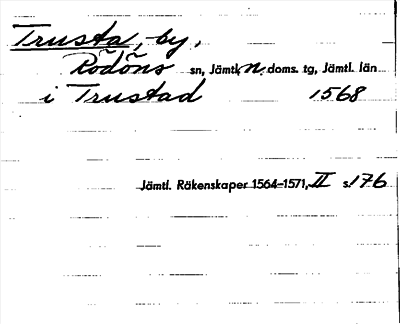 Trusta, by,
Rödöns sn, Jämtl. n. doms. tg, Jämtl. län
i Trustad 1568
Jämtl. Räkenskaper 1564-1571, II s. 176